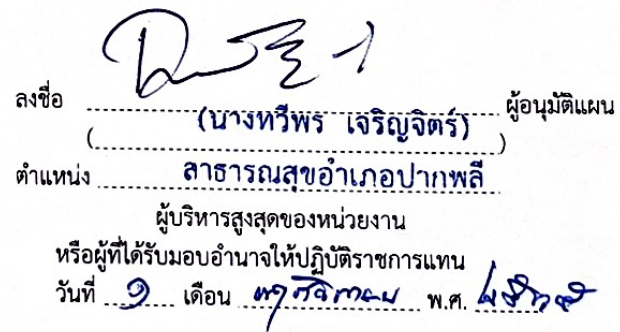 ลงชื่อ ผู้อนุมัติแผน
(นางทวีพร เจริญจิตร์)
( )
ตำแหน่ง สาธารณสุขอำเภอปากพลี
ผู้บริหารสูงสุดของหน่วยงาน
หรือผู้ที่ได้รับมอบอำนาจให้ปฏิบัติราชการแทน
วันที่ ๑ เดือน พฤศจิกายน พ.ศ.